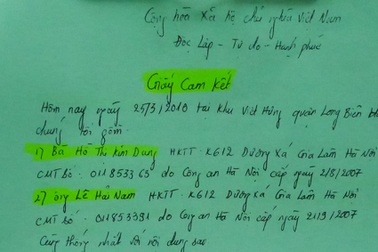 Cộng hòa Xã hộ chủ nghĩa Việt Nam
Độc Lập - Tự do - Hạnh phúc
Giấy Cam kết
Hôm nay ngày 25/3/2010 tại khu Việt Hưng quận Long Biên
dung tôi gồm
1) Bà Hồ Thị Kim Dung HKTT. K612 Dương Xá Gia Lâm Hà Nội
CMT Số. do Công an Hà Nội cấp ngày 2/8/2007
2) ông Lê Hải Nam HKTT. K612 Dương Xá Gia Lâm Hà Nội
CMT Số. do Công an Hà Nội cấp ngày
Cùng thống nhất với nội dung sau